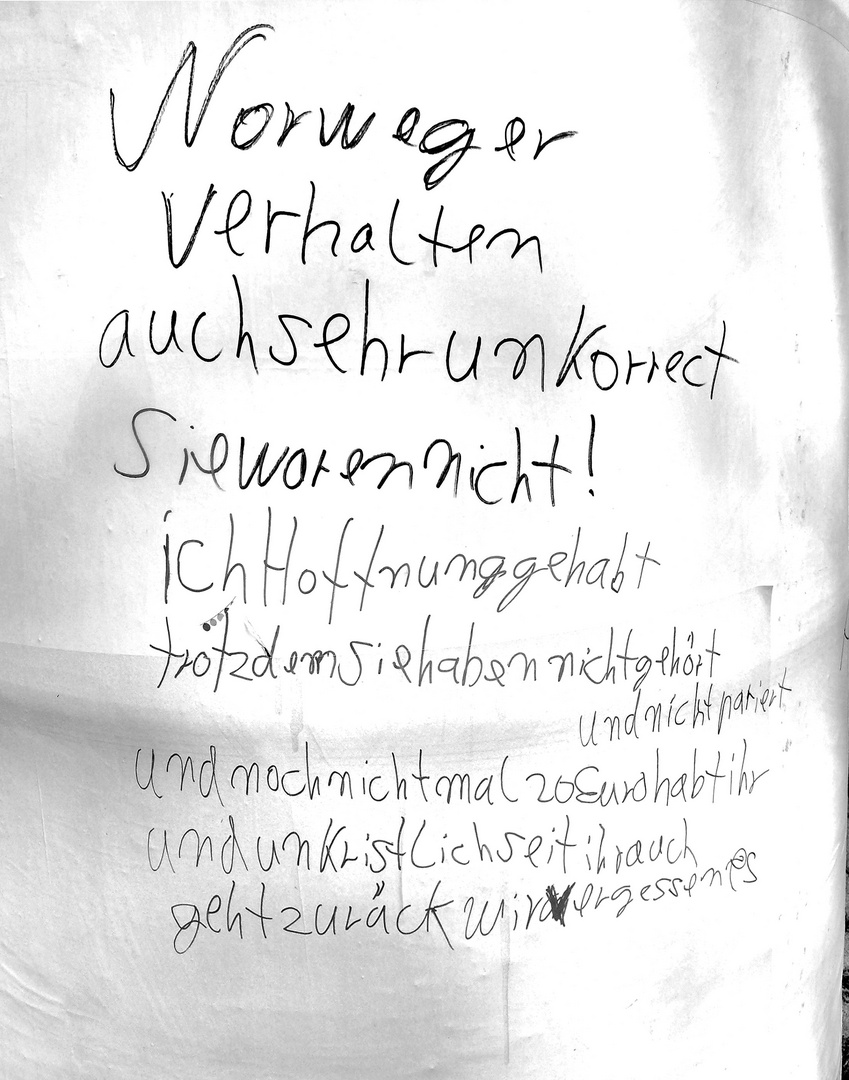 Norweger
verhalten
auchsehrunkorrect
Siewarennicht!
ichHoffnunggehabt
trotzdemsiehabennichtgehört
undnichtpariert
undnochnichtmal20Eurohabtihr
undunkristlichseitihrauch
gehtzuräck wirvergessenes